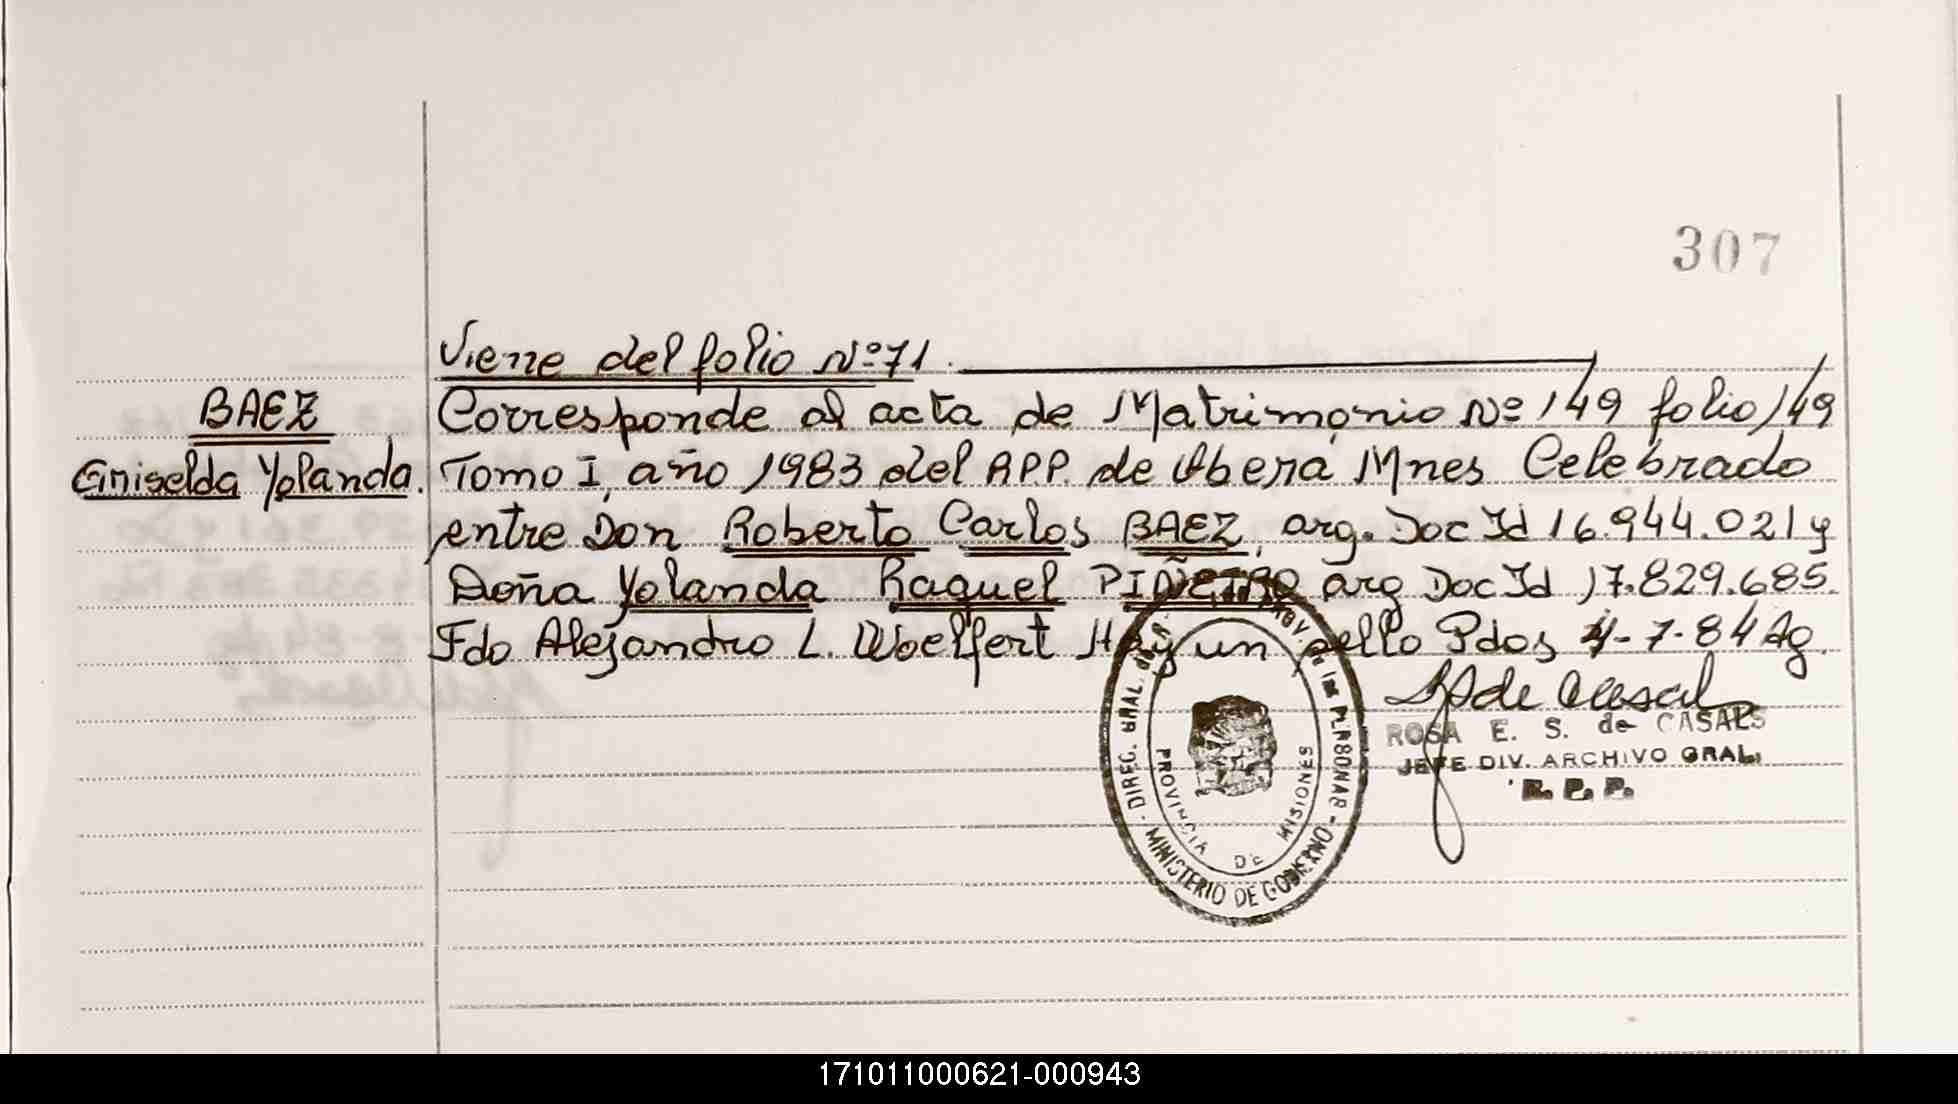 307
Viene del folio Nº 71.
BAEZ
Griselda Yolanda.
Corresponde al acta de Matrimonio Nº 149 folio 149
Tomo I, año 1983 del R.P.P. de Obera Mnes Celebrado
entre Don Roberto Carlos BAEZ, arg. Doc Id 16.944.021 y
Doña Yolanda Raquel PIÑEIRO arg Doc Id 17.829.685.
Fdo Alejandro L. Woelfert Hay un sello Pdos 4-7-84 Ag.
ROSA E. S. de CASALS
JEFE DIV. ARCHIVO GRAL.
R. P. P.
DIREC. GRAL. DEL R. PROV. DE LAS PERSONAS
MINISTERIO DE GOBIERNO
PROVINCIA DE MISIONES
171011000621-000943